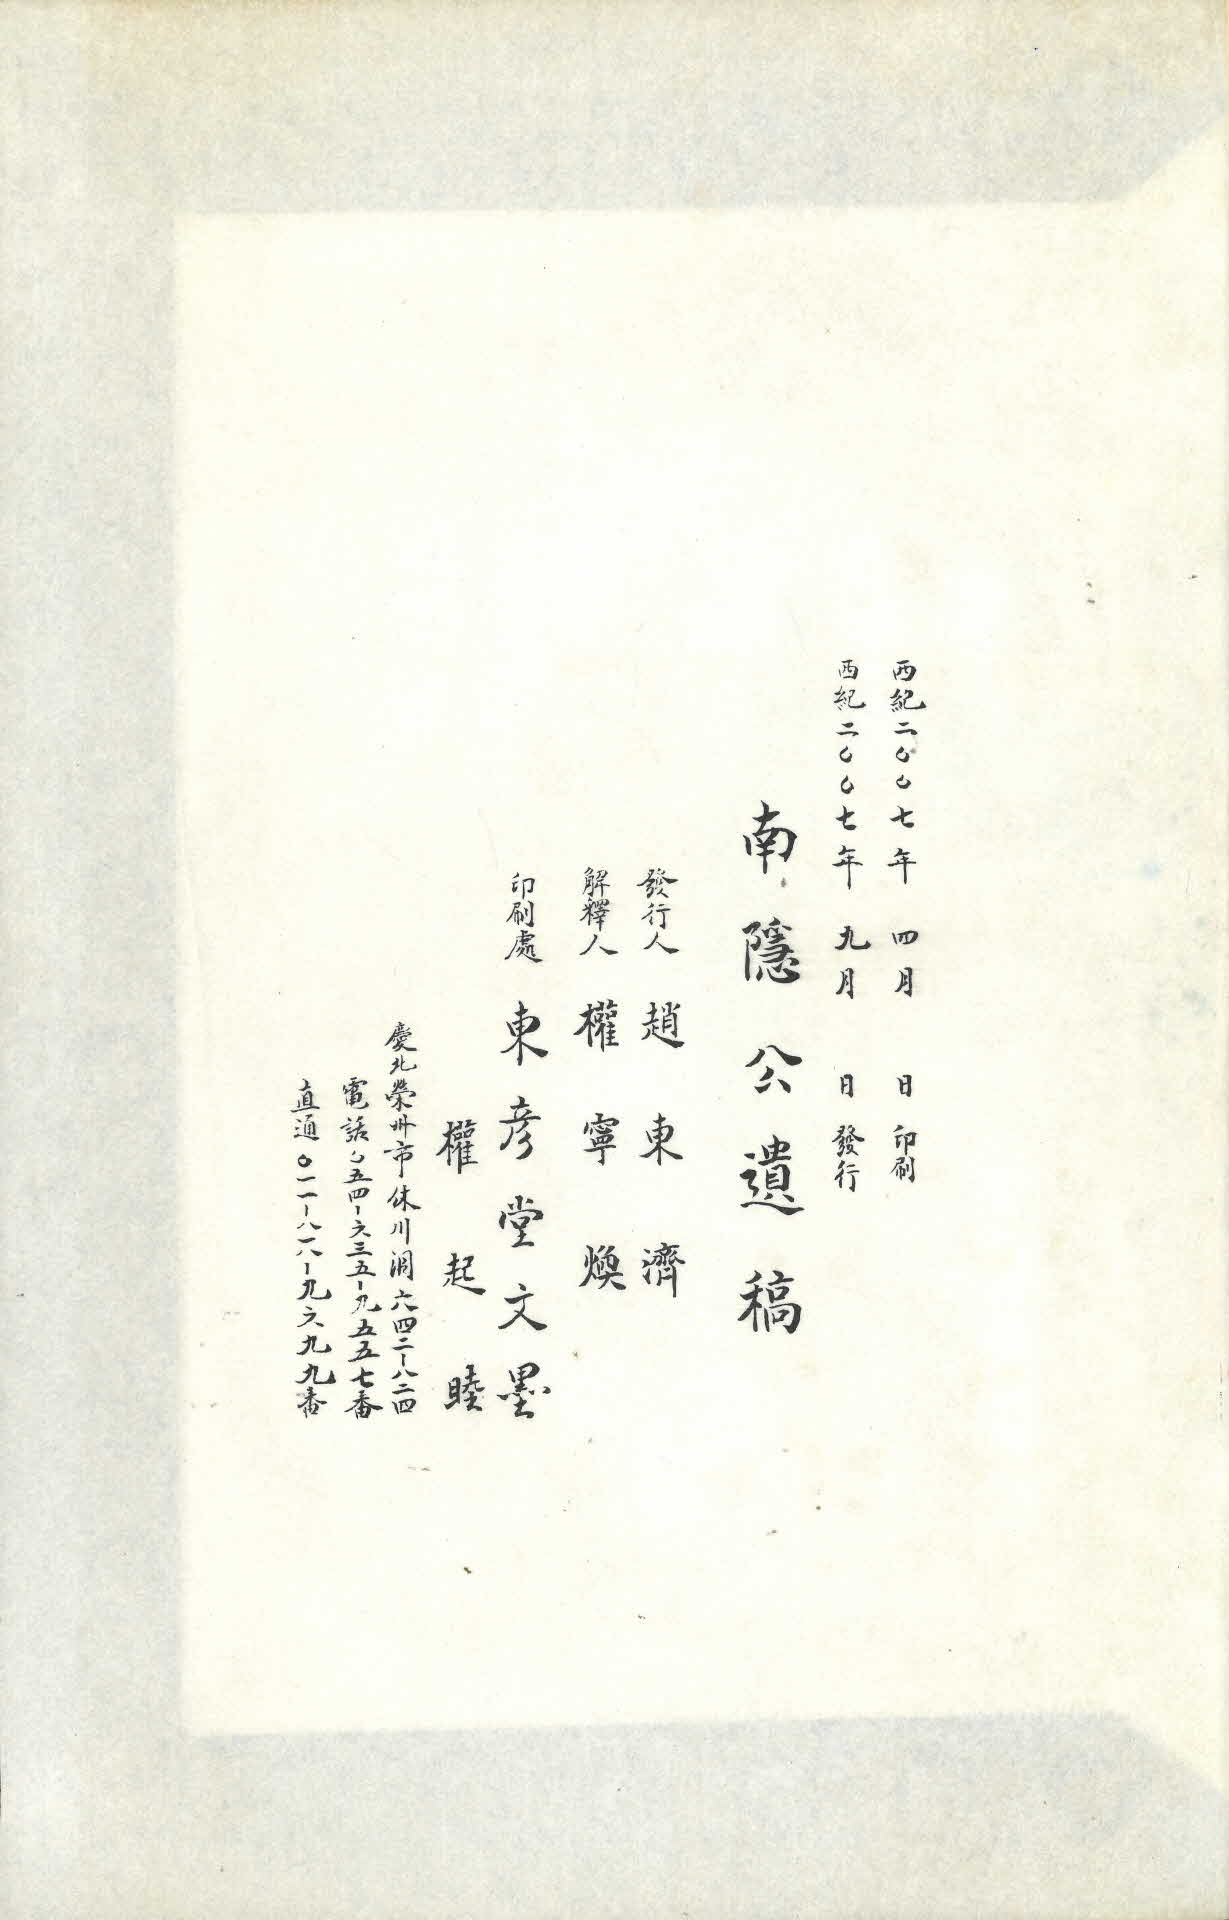 西紀二〇〇七年 四月 日 印刷
西紀二〇〇七年 九月 日 發行
南隱公遺稿
發行人 趙東濟
解釋人 權寧煥
印刷處 東彦堂文墨
權起睦
慶北榮州市休川洞六四二-八二四
電話〇五四-六三五-九五五七番
直通〇一一-八一八-九六九九番